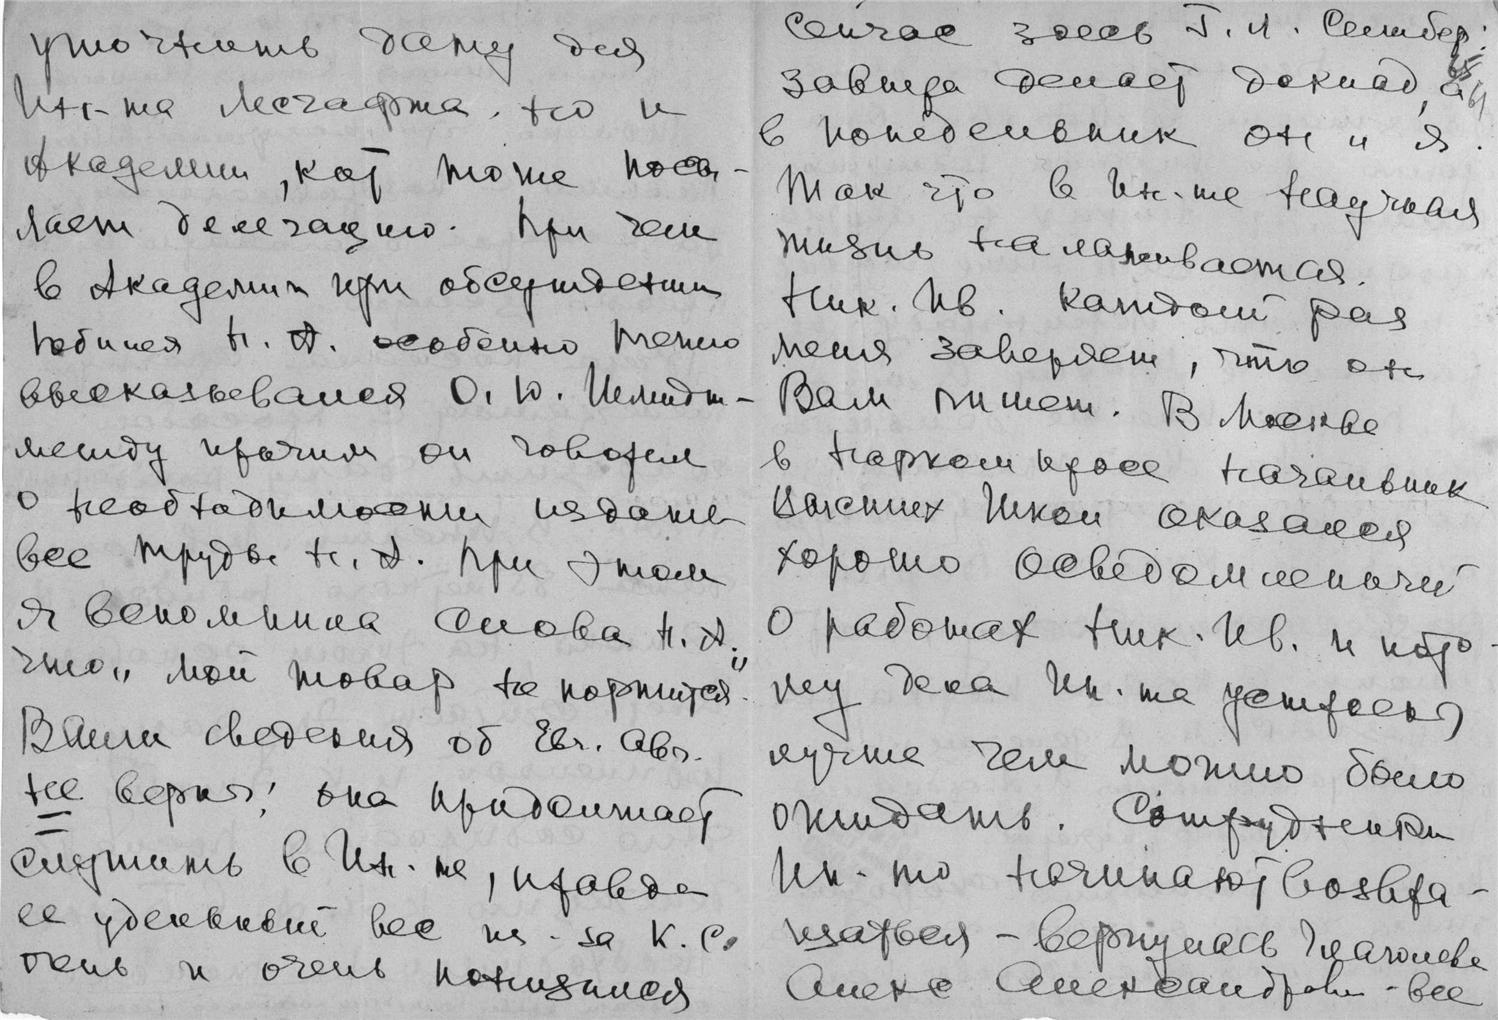 уточнить дату для
Ин-та Лесгафта, но и
Академии, кот тоже посы-
лает делегацию. При чем
в Академии при обсуждении
юбилея Н. А. особенно тепло
высказывался О. Ю. Шмидт-
между прочим он говорил
о необходимости издать
все труды Н. А. При этом
я вспомнила слова Н. А.
что „мой товар не портится"
Ваши сведения об Евг. Авг.
не верны! она продолжает
служить в Ин-те, правда
ее удельный вес из-за К. С.
очень и очень понизился
Сейчас здесь Г. Л.
завтра делает доклад, а
в понедельник он и я.
Так что в Ин-те научная
жизнь налаживается.
Ник. Ив. каждый раз
меня заверяет, что он
Вам пишет. В Москве
в Наркомпросе начальник
высших школ оказался
хорошо осведомленный
о работах Ник. Ив. и пото-
му дела Ин-та устроены
лучше чем можно было
ожидать. Сотрудники
Ин-та начинают возвра-
щаться - вернулась
Алекс Александровн - все